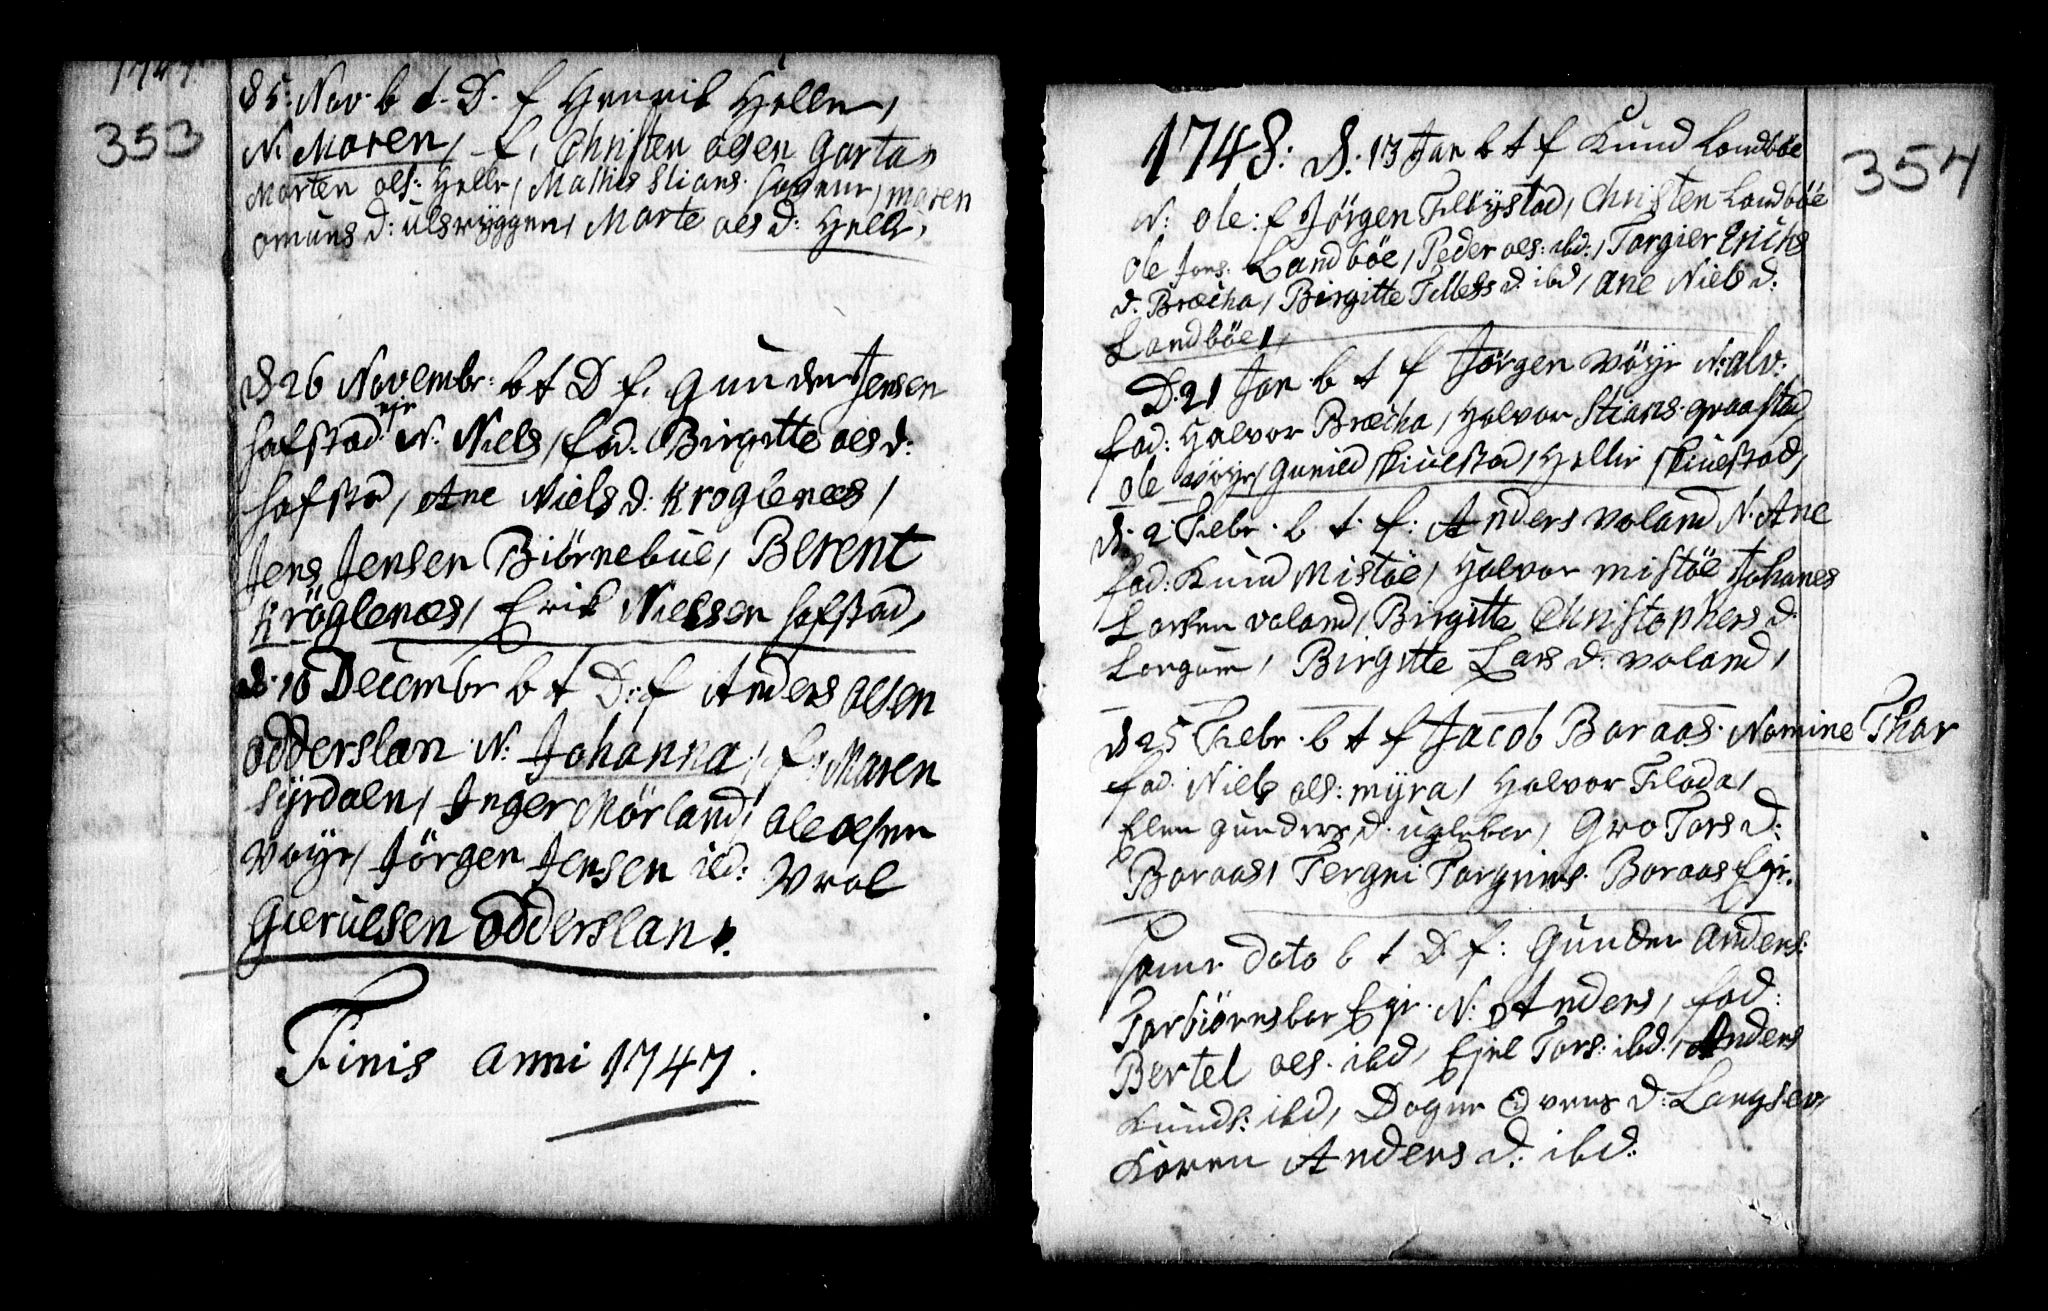 1747
353
D 5: Nov. b t. D. f Henrik Helle,
N. Maren, f, Christen olsen Gartas
Morten ols: Helle, Mathis Stians. maren
omuns d: ulsryggen, Marte ols d: Helle,
D 26 Novembr: b t D f. Gunder Jensen
hafstad ejr N: Niels, fad. Birgitte ols d:
hafstad, Ane Niels d: Kroglenæs,
Jens Jensen Biörnebue, Berent
Kröglenæs, Erik Nielsen hafstad,
D. 10 Decembr b t D: f Anders olsen
odderslan N: Johanna, f, Maren
Syrdalen, Inger Mörland, ole olsen
Vöyr, Jörgen Jensen ibd: Wrol
Gierulsen odderslan.
Finis anni 1747.
354
1748: D. 13 Jan b t f Knud Landböe
N: ole: f Jörgen Felbystad, Christen Landböe
ole Jons: Landböe, Peder ols: ibd:, Targier Erichs
d. Bræcha, Birgitte Tellefs d. ibd, Ane Niels d:
Landböe,
D. 21 Jan b t f Jörgen Vöyr N: alv:
fad: Halvor Bræcha, Halvor Stians. graastad,
ole Vöyr, Gunild skiulstad, Hellie skiulstad,
D. 2 Febr. b. t. f: Anders voland N. Ane
fad: Knud Mistöe, Halvor mistöe Johanes
Larsen voland, Birgitte Christophers d.
Langum, Birgitte Lars d: voland,
D 25 Febr. b t f Jacob Boraas. Nomine Thar
fad: Niels ols: myra, Halvor Flada,
Elen gunders d. ugleber, Gro Tors d:
Boraas, Tergni Torgniws. Boraas Ejr.
same dato b t D f: Gunder Anders:
Tarbiörnsbor Ejr. N: Anders, fad:
Bertel ols. ibd, Ejel Tors: ibd:, Anders
Knuds: ibd, Dagne d: Langsev,
Karen Anders d: ibd: